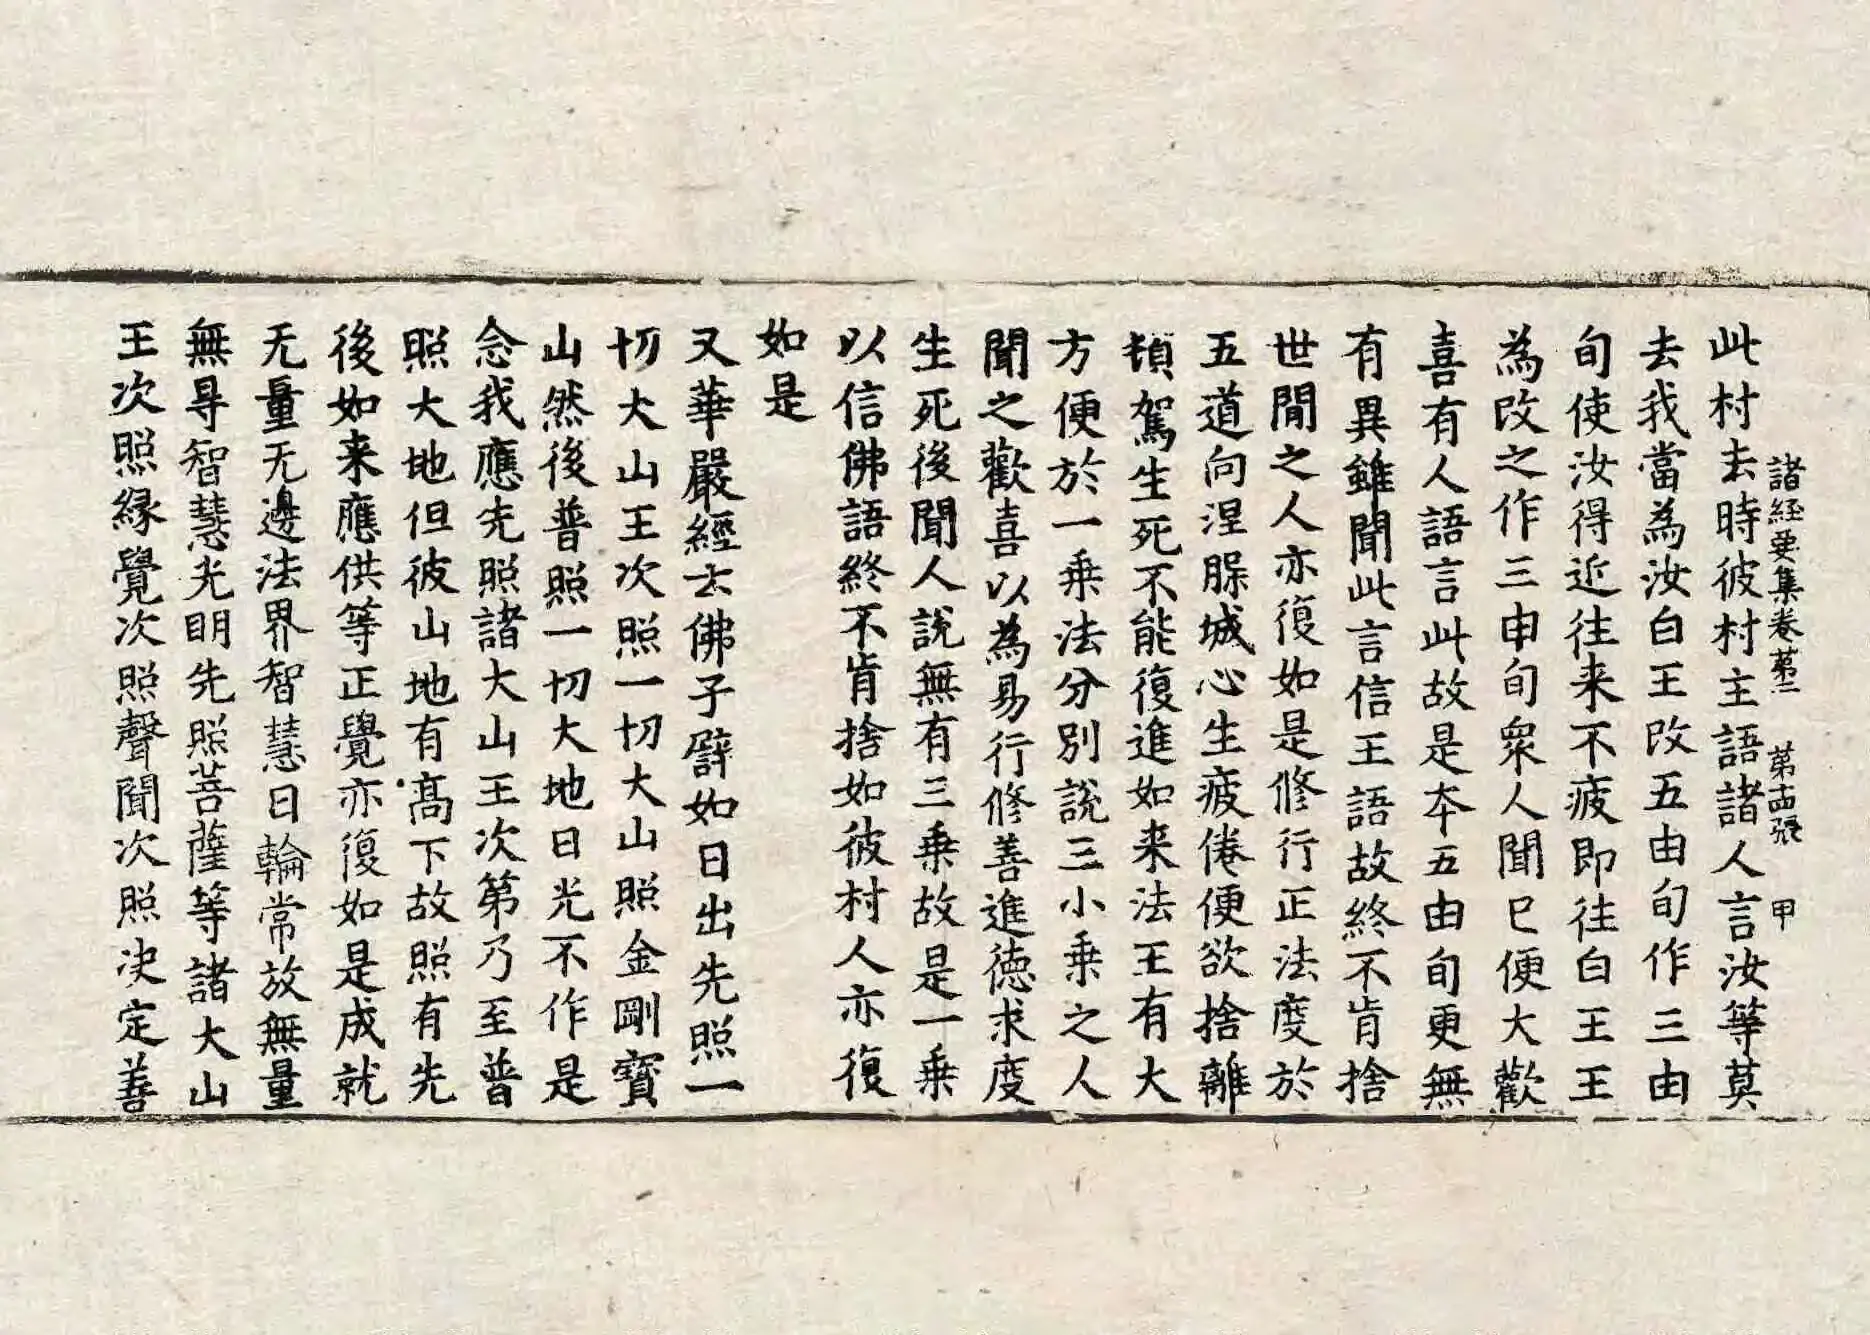 諸経要集卷苐二 第十四張 甲
此村去時彼村主語諸人言汝等莫
去我當為汝白王改五由旬作三由
旬使汝得近往来不疲即往白王王
為改之作三申旬衆人聞已便大歡
喜有人語言此故是本五由旬更無
有異雖聞此言信王語故終不肯捨
世間之人亦復如是修行正法度於
五道向涅槃城心生疲倦便欲捨離
頓駕生死不能復進如来法王有大
方便於一乗法分別說三小乗之人
聞之歡喜以為易行修善進德求度
生死後聞人說無有三乗故是一乗
以信佛語終不肯捨如彼村人亦復
如是
又華嚴經云佛子譬如日出先照一
切大山王次照一切大山照金剛寶
山然後普照一切大地日光不作是
念我應先照諸大山王次第乃至普
照大地但彼山地有髙下故照有先
後如来應供等正覺亦復如是成就
无量无邊法界智慧日輪常放無量
無㝵智慧光明先照菩薩等諸大山
王次照縁覺次照聲聞次照决定善